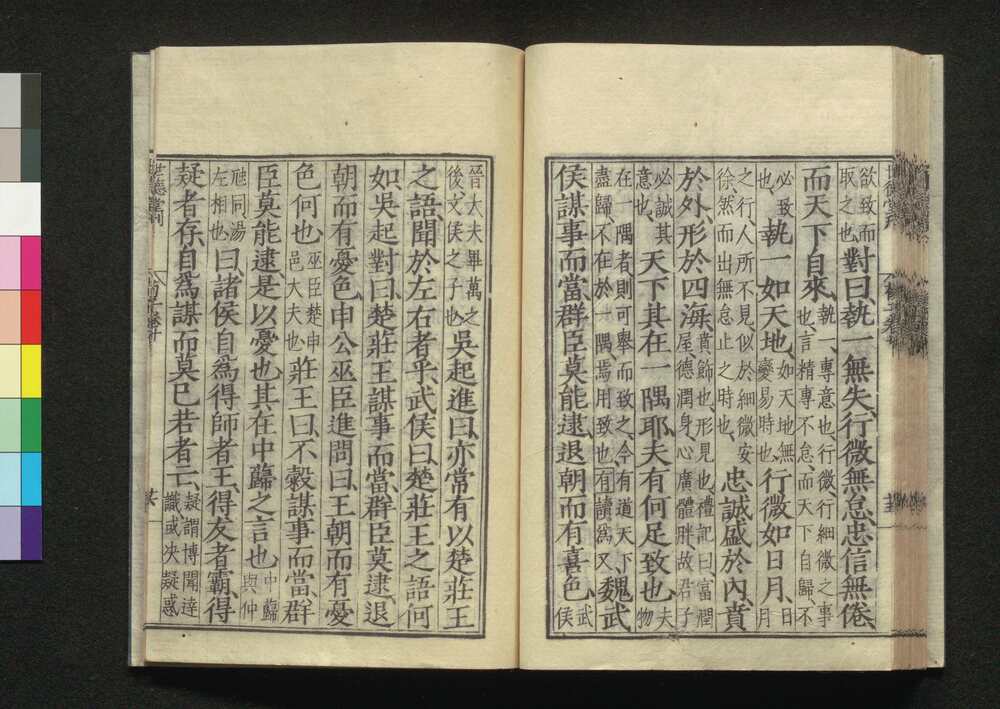 欲致而取之也對曰、執一無失、行微無怠、忠信無倦、
而天下自來、執一、專意也、行微、行細微之事也、言精專不怠、而天下自歸不
必致也、執一如天地、如天地無變易時也、行微如日月、日月
之行、人所不見、似於細微、安徐、然而出無怠止之時也、忠誠盛於內、賁
於外、形於四海、賁飾也、形見也、禮記曰、富潤屋、德潤身、心廣體胖、故君子
必誠其意也、天下其在一隅耶、夫有何足致也、夫物
在一隅者、則可舉而致之、今有道天下盡歸、不在於一隅、焉用致也、有讀爲又魏武
侯謀事而當、群臣莫能逮、退朝而有喜色、武侯
晉大夫畢萬之後、文侯之子也、吳起進曰、亦常有以楚莊王
之語、聞於左右者乎、武侯曰、楚莊王之語何
如、吳起對曰、楚莊王謀事而當、群臣莫逮、退
朝而有憂色、申公巫臣進問曰、王朝而有憂
色何也、巫臣楚申邑大夫也、莊王曰、不穀謀事而當、群
臣莫能逮、是以憂也、其在中蘬之言也、中蘬與仲
虺同、湯左相也、曰、諸侯自爲得師者王、得友者霸、得
疑者存、自爲謀而莫己若者亡、疑謂博聞達識或決疑惑
世德堂刊